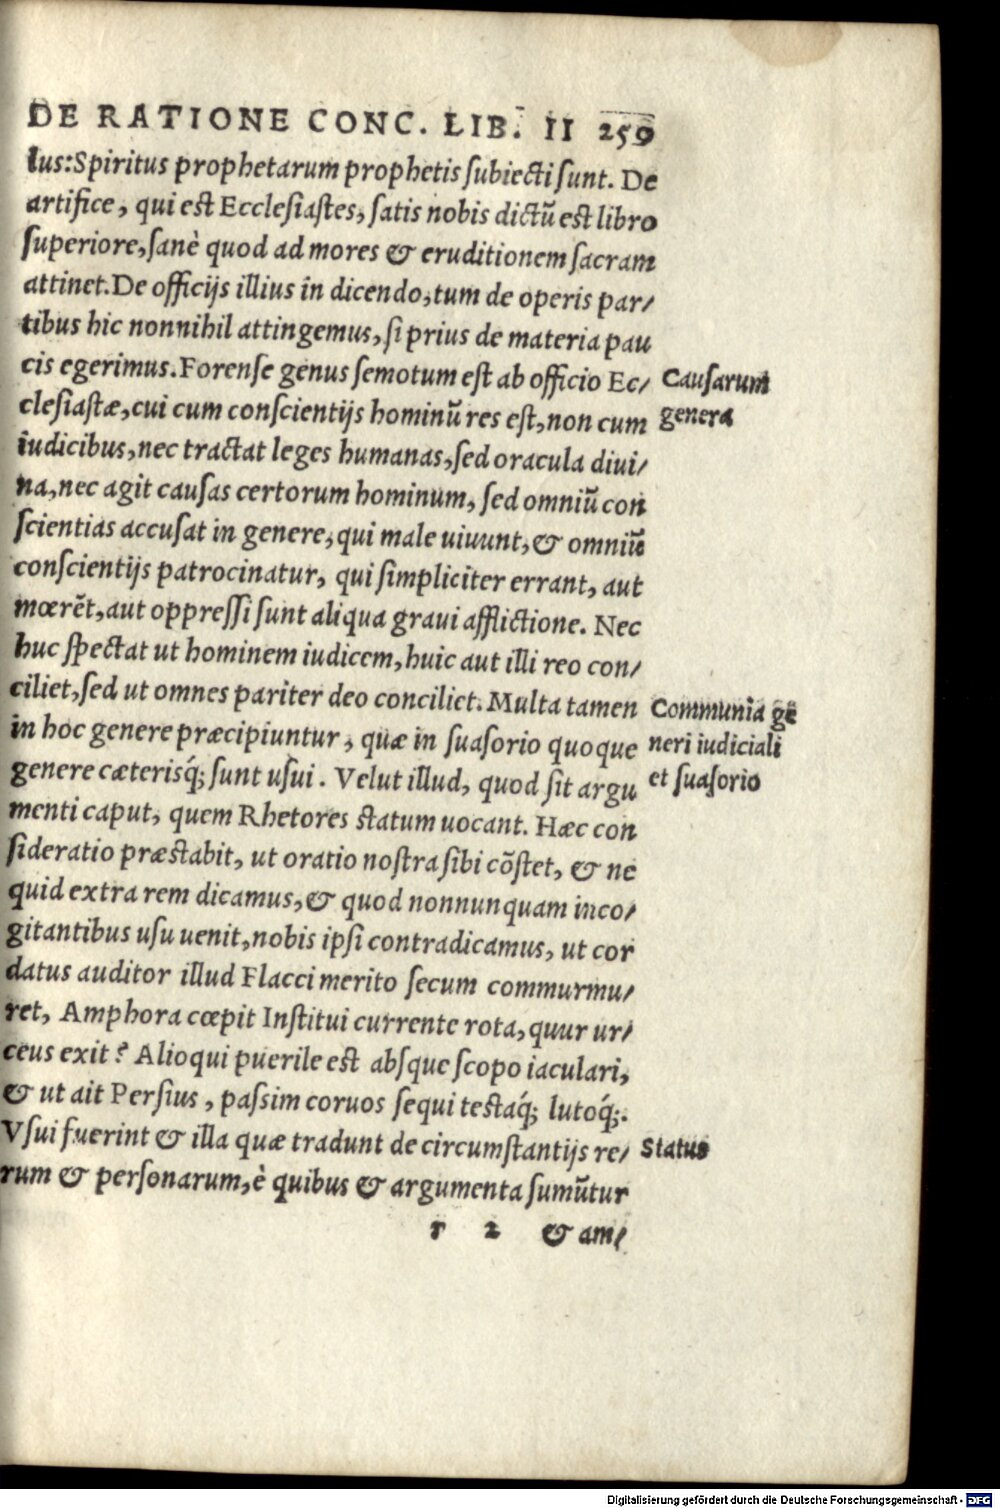 DE RATIONE CONC. LIB. II 259
lus:Spiritus prophetarum prophetis subiecti sunt. De
artifice, qui est Ecclesiastes, satis nobis dictũ est libro
superiore, sanè quod ad mores & eruditionem sacram
attinet. De officijs illius in dicendo, tum de operis par/
tibus hic nonnihil attingemus, si prius de materia pau
cis egerimus. Forense genus semotum est ab officio Ec/
clesiastæ, cui cum conscientijs hominũ res est, non cum
iudicibus, nec tractat leges humanas, sed oracula diui/
na, nec agit causas certorum hominum, sed omniũ con
scientias accusat in genere, qui male uiuunt, & omniũ
conscientijs patrocinatur, qui simpliciter errant, aut
mœrẽt, aut oppressi sunt aliqua graui afflictione. Nec
huc spectat ut hominem iudicem, huic aut illi reo con/
ciliet, sed ut omnes pariter deo conciliet. Multa tamen
in hoc genere præcipiuntur, quæ in suasorio quoque
genere cæterisq́; sunt usui. Velut illud, quod sit argu
menti caput, quem Rhetores statum uocant. Hæc con
sideratio præstabit, ut oratio nostra sibi cõstet, & ne
quid extra rem dicamus, & quod nonnunquam inco/
gitantibus usu uenit, nobis ipsi contradicamus, ut cor
datus auditor illud Flacci merito secum commurmu/
ret, Amphora cœpit Institui currente rota, quur ur/
ceus exit? Alioqui puerile est absque scopo iaculari,
& ut ait Persius, passim coruos sequi testaq́; lutoq́;.
Vsui fuerint & illa quæ tradunt de circumstantijs re/
rum & personarum, è quibus & argumenta sumũtur
r 2 & am/
Causarum
genera
Communia gẽ
neri iudiciali
et suasorio
Status
Digitalisierung gefördert durch die Deutsche Forschungsgemeinschaft - DFG